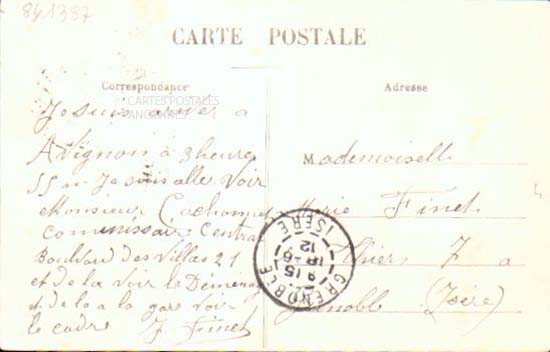 841387
CARTE POSTALE
Correspondance
Adresse
CARTES POSTALES
ANCIENNES
Je suis arrivé a
Avignon à 3 heure
55 m Je suis allé voir
Monsieur Cachonnet
Commissaire Central
Boulevard des Villas 21
et de la voir le Déménag
et de la a la gare voir
le cadre F. Finet
Mademoiselle
Marie Finet
Thiers 7 a
Grenoble (Isère)
GRENOBLE
ISÈRE
18-40
9 15
12